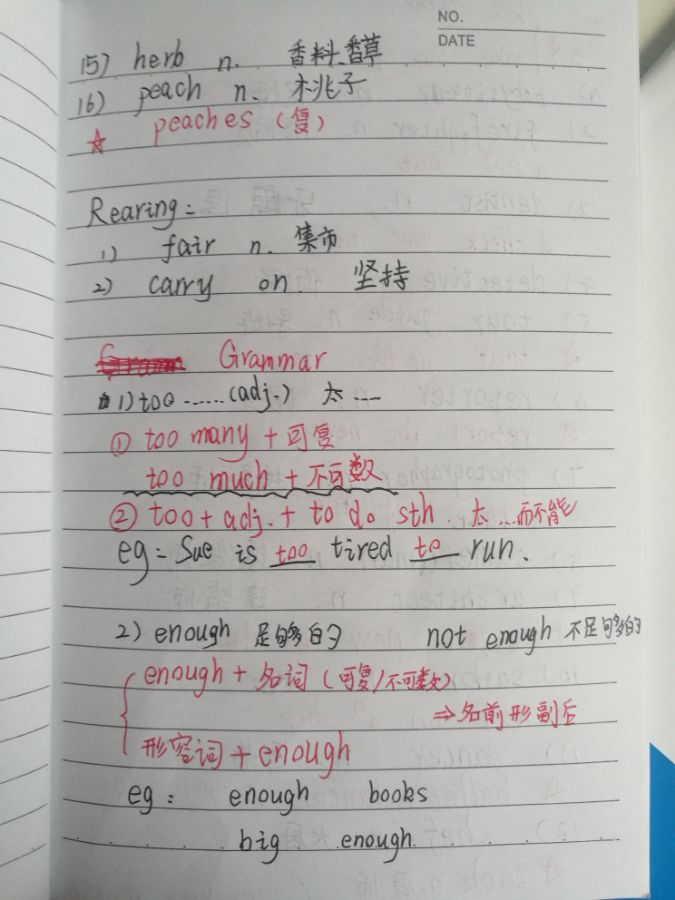 NO.
DATE
15) herb n. 香料.香草
16) peach n. 桃子
☆ peaches (复)
Rearing:
1) fair n. 集市
2) carry on 坚持
Grammar
1) too ...... (adj.) 太 ....
① too many + 可复
too much + 不可数
② too + adj. + to do sth. 太...而不能
eg: Sue is too tired to run.
2) enough 足够的 not enough 不足够的
enough + 名词 (可复/不可数)
⇒名前形副后
形容词 + enough
eg: enough books
big enough.